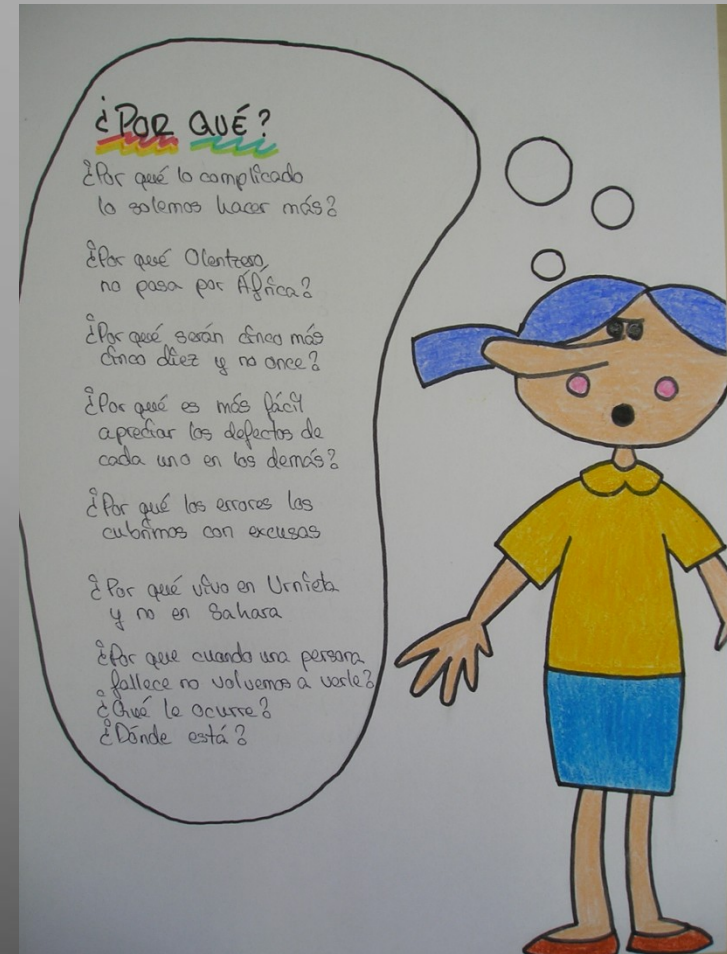 ¿POR QUÉ?
¿Por qué lo complicado
lo solemos hacer más?
¿Por qué Olentzero,
no pasa por África?
¿Por qué serán cinco más
cinco diez y no once?
¿Por qué es más fácil
apreciar los defectos de
cada uno en los demás?
¿Por qué los errores los
cubrimos con excusas
¿Por qué vivo en Urnieta
y no en Sahara
¿Por que cuando una persona
fallece no volvemos a verle?
¿Qué le ocurre?
¿Dónde está?